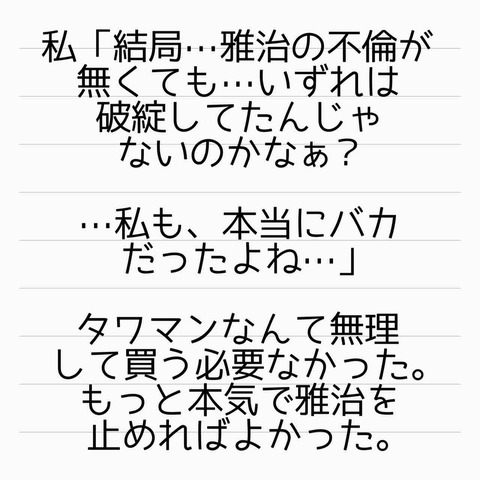 私「結局…雅治の不倫が
無くても…いずれは
破綻してたんじゃ
ないのかなぁ？
…私も、本当にバカ
だったよね…」
タワマンなんて無理
して買う必要なかった。
もっと本気で雅治を
止めればよかった。